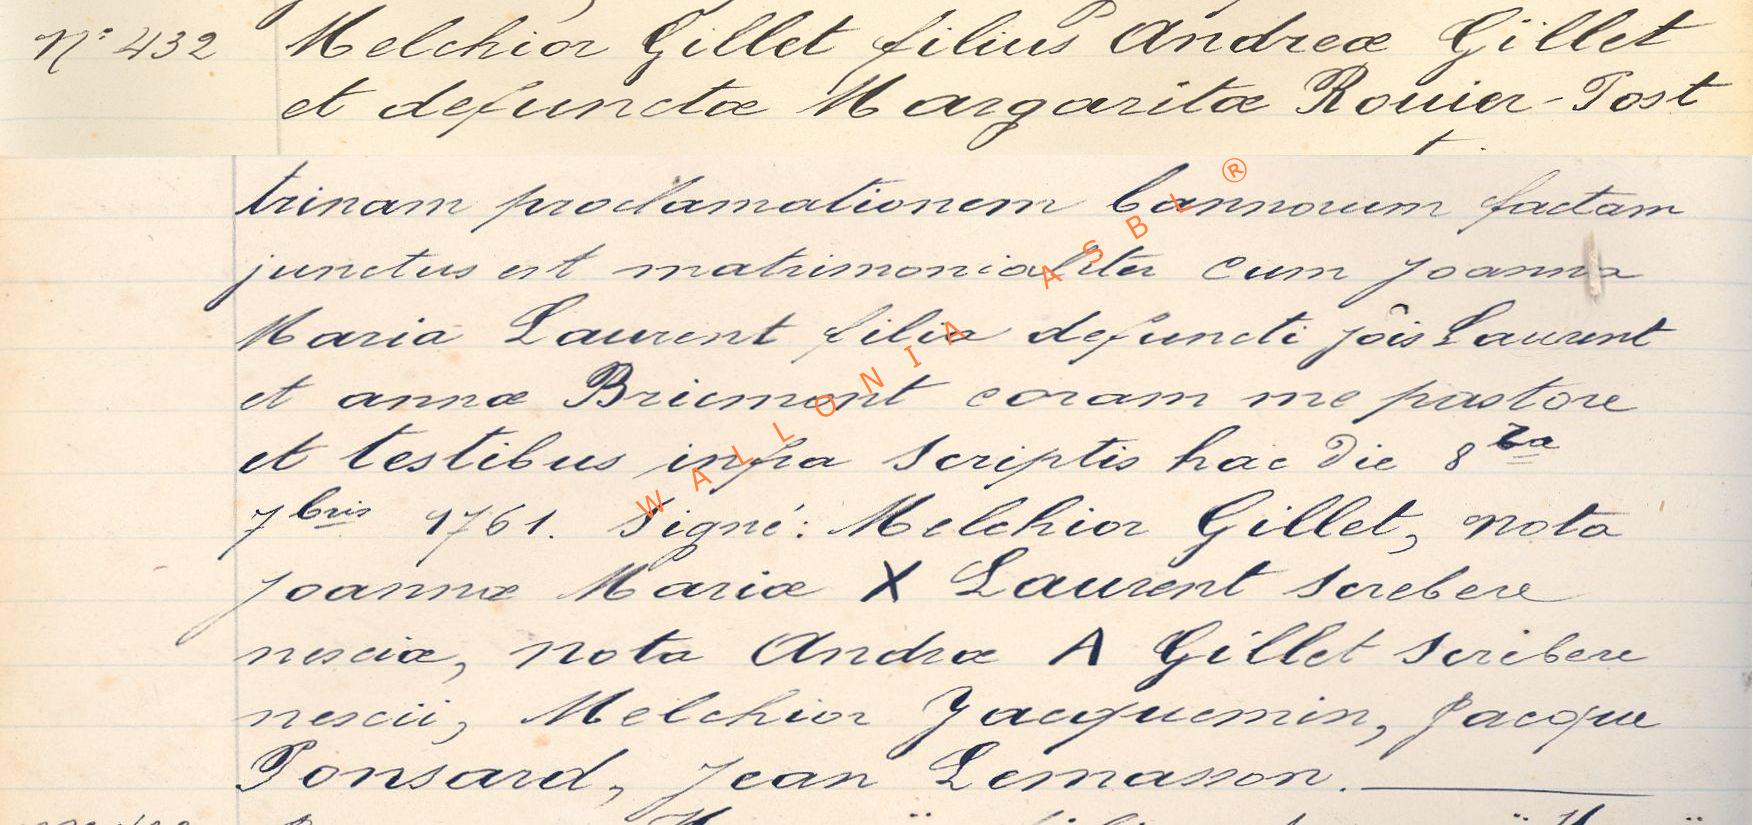 N° 432 Melchior Gillet filius Andreæ Gillet
et defunctæ Margaritæ Rouier - Post
trinam proclamationem bannorum factam
junctus est matrimonialiter cum Joanna
Maria Laurent filia defuncti jôis Laurent
et annæ Bricmont coram me pastore
et testibus infra scriptis hac die 8va
7bris 1761. Signé: Melchior Gillet, nota
Joannæ Mariæ X Laurent screbere
nesciæ, nota Andræ A Gillet scribere
nescii, Melchior Jacquemin, Jacque
Ponsard, Jean Lemasson.
WALLONIA ASBL ®